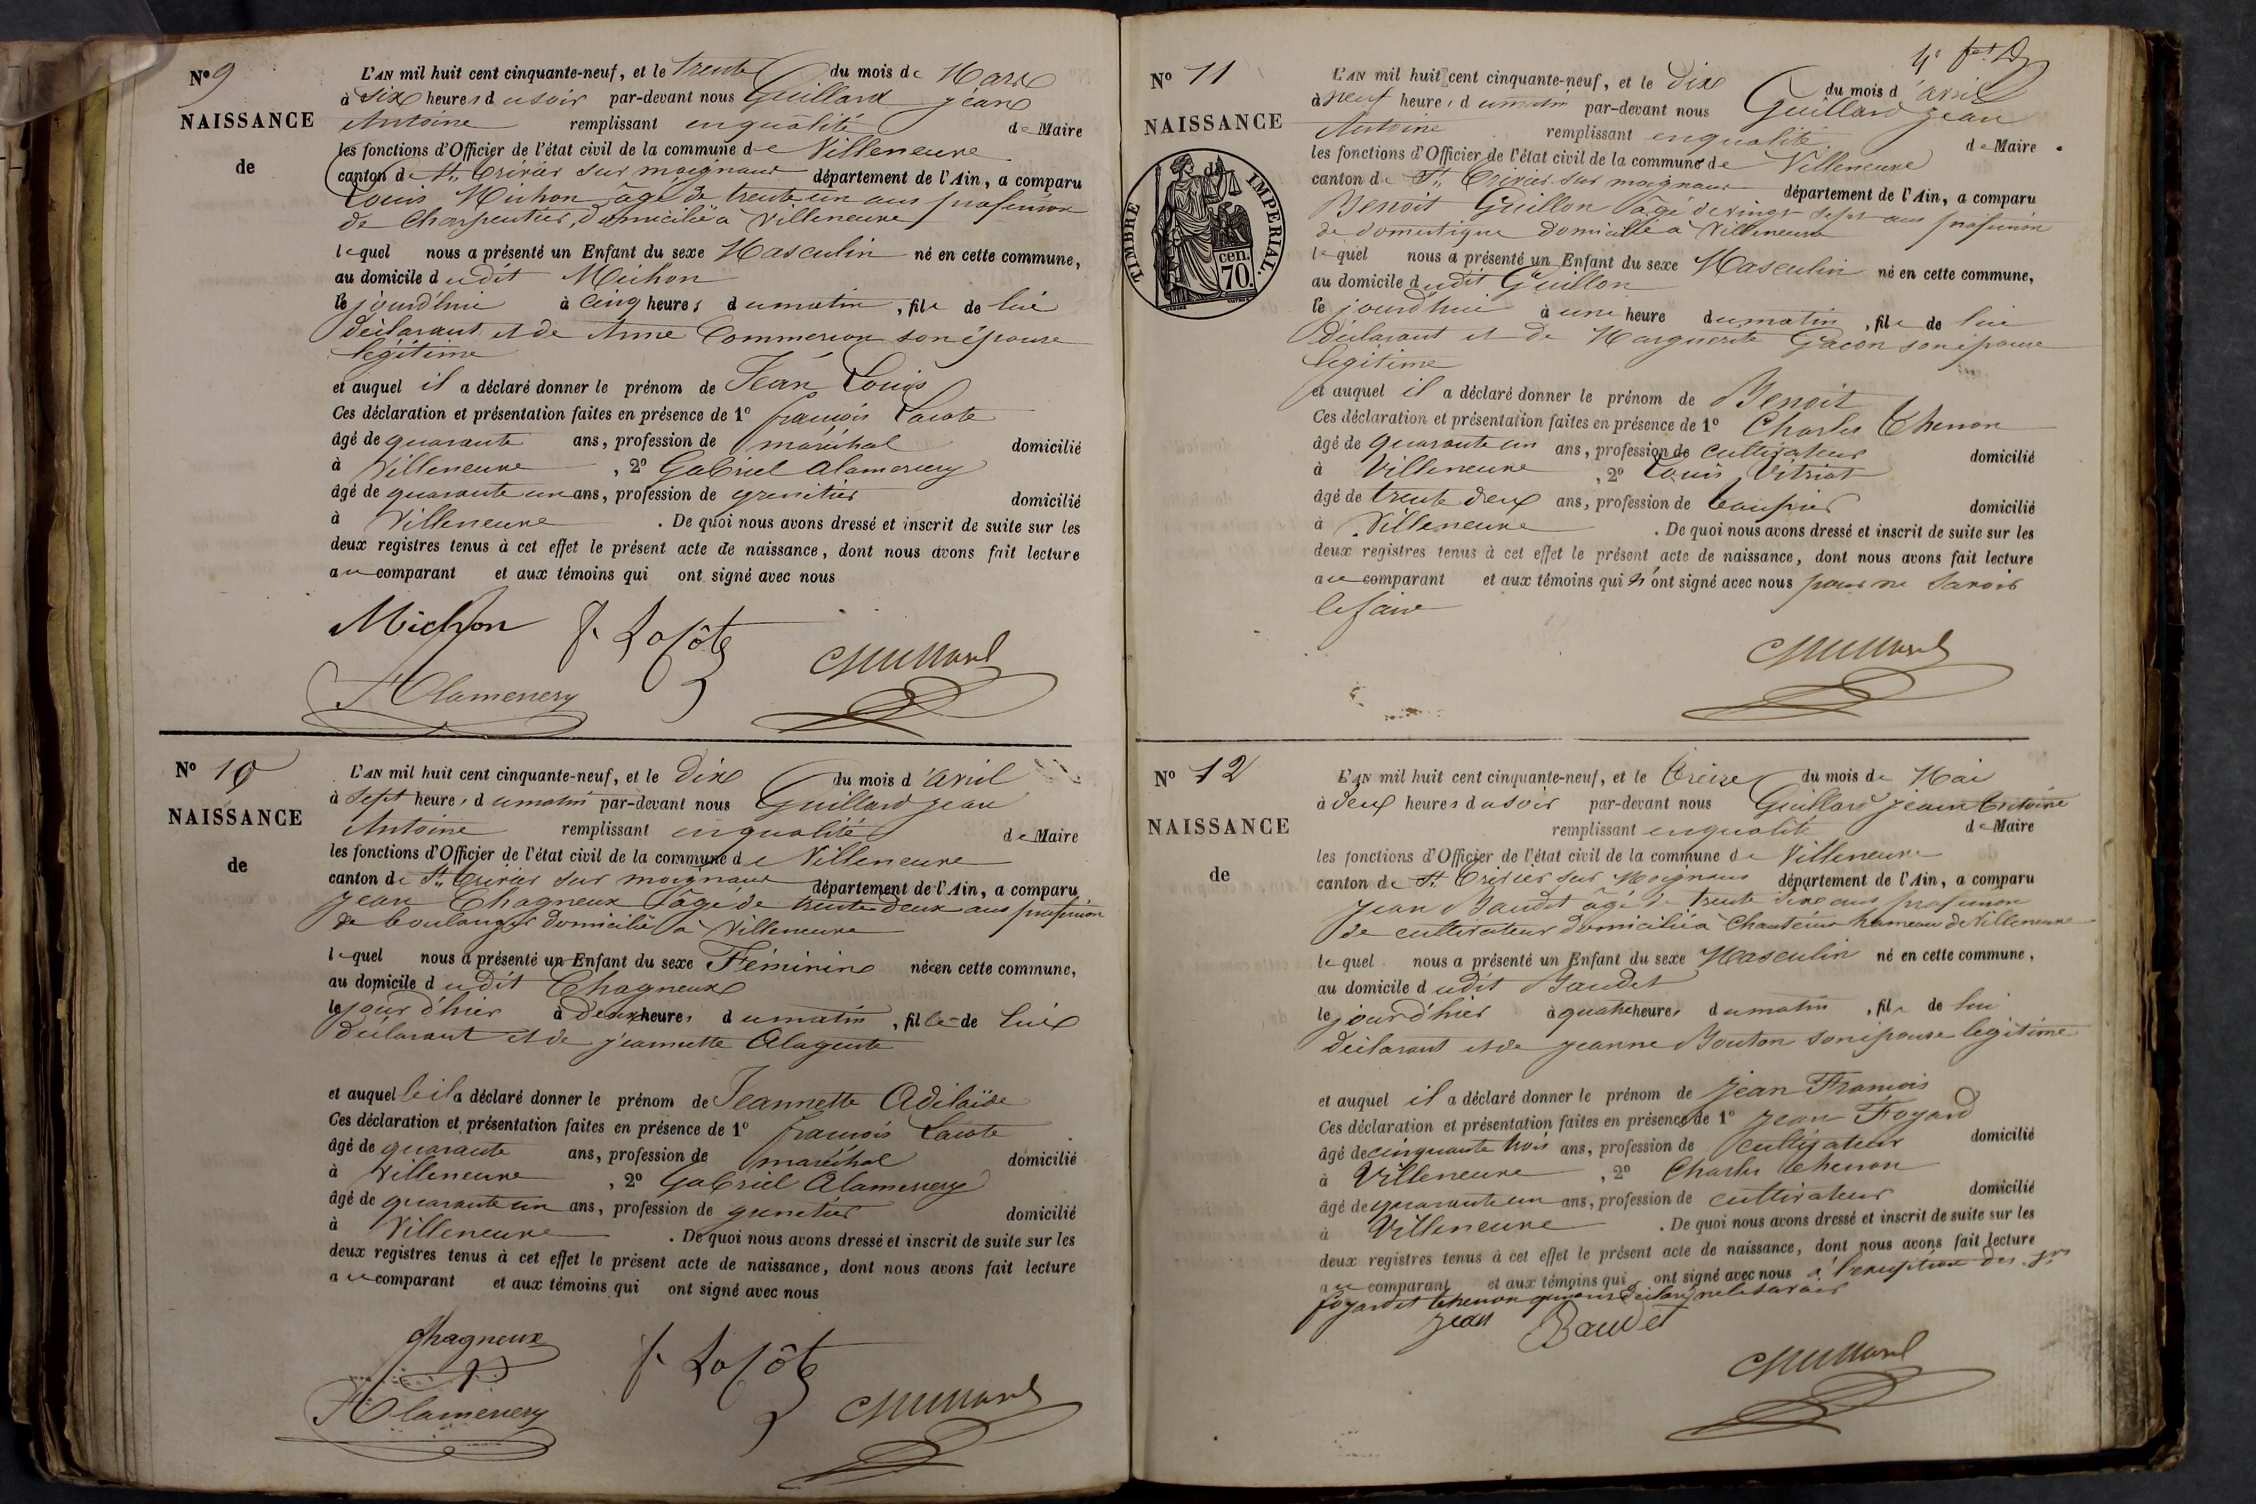 N° 9
NAISSANCE
de
L'AN mil huit cent cinquante-neuf, et le trente du mois de Mars
à Six heures du soir par-devant nous Guillard jean
Antoine remplissant en qualité de Maire
les fonctions d'Officier de l'état civil de la commune de Villeneuve
canton de St. Trivier sur moignans département de l'Ain, a comparu
Louis Michon âgé de trente un ans profession
de Charpentier, domicilié à Villeneuve
lequel nous a présenté un Enfant du sexe Masculin né en cette commune,
au domicile dudit Michon
le jourd'hui à Cinq heures du matin, fils de lui
déclarant et de Anne Commerson son épouse
légitime
et auquel il a déclaré donner le prénom de Jean Louis
Ces déclaration et présentation faites en présence de 1° françois Lacote
âgé de quarante ans, profession de maréchal domicilié
à Villeneuve, 2° Gabriel Alamercery
âgé de quarante un ans, profession de grenetier domicilié
à Villeneuve. De quoi nous avons dressé et inscrit de suite sur les
deux registres tenus à cet effet le présent acte de naissance, dont nous avons fait lecture
au comparant et aux témoins qui ont signé avec nous
Michon f. Lacôte Guillard
Alamercery
N° 10
NAISSANCE
de
L'AN mil huit cent cinquante-neuf, et le Dix du mois d'avril
à Sept heures du matin par-devant nous Guillard jean
Antoine remplissant en qualité de Maire
les fonctions d'Officier de l'état civil de la commune de Villeneuve
canton de St. Trivier sur moignans département de l'Ain, a comparu
jean Chagneux âgé de trente deux ans profession
de boulanger domicilié à Villeneuve
lequel nous a présenté un Enfant du sexe Féminin née en cette commune,
au domicile dudit Chagneux
le jour d'hier à deux heures du matin, fille de lui
déclarant et de jeannette Alagente
et auquel le il a déclaré donner le prénom de Jeannette Adélaïde
Ces déclaration et présentation faites en présence de 1° françois Lacote
âgé de quarante ans, profession de maréchal domicilié
à Villeneuve, 2° Gabriel Alamercery
âgé de quarante un ans, profession de grenetier domicilié
à Villeneuve. De quoi nous avons dressé et inscrit de suite sur les
deux registres tenus à cet effet le présent acte de naissance, dont nous avons fait lecture
au comparant et aux témoins qui ont signé avec nous
Chagneux f. Lacôte
Alamercery Guillard
N° 11
NAISSANCE
de
TIMBRE IMPERIAL.
70 cen.
L'AN mil huit cent cinquante-neuf, et le Dix du mois d'avril
à neuf heures du matin par-devant nous Guillard jean
Antoine remplissant en qualité de Maire
les fonctions d'Officier de l'état civil de la commune de Villeneuve
canton de St. Trivier sur moignans département de l'Ain, a comparu
Benoit Guillon âgé de vingt sept ans profession
de domestique domicilié à Villeneuve
lequel nous a présenté un Enfant du sexe Masculin né en cette commune,
au domicile dudit Guillon
le jourd'hui à une heure du matin, fils de lui
déclarant et de Marguerite Gacon son épouse
légitime
et auquel il a déclaré donner le prénom de Benoit
Ces déclaration et présentation faites en présence de 1° Charles Thenon
âgé de quarante un ans, profession de cultivateur domicilié
à Villeneuve, 2° Louis Vitriat
âgé de trente deux ans, profession de domicilié
à Villeneuve. De quoi nous avons dressé et inscrit de suite sur les
deux registres tenus à cet effet le présent acte de naissance, dont nous avons fait lecture
au comparant et aux témoins qui n'ont signé avec nous pour ne savoir
le faire
Guillard
N° 12
NAISSANCE
de
L'AN mil huit cent cinquante-neuf, et le treize du mois de Mai
à deux heures du soir par-devant nous Guillard jean Antoine
remplissant en qualité de Maire
les fonctions d'Officier de l'état civil de la commune de Villeneuve
canton de St. Trivier sur Moignans département de l'Ain, a comparu
jean Baudet âgé de trente six ans profession
de cultivateur domicilié à Chanteins hameau de Villeneuve
lequel nous a présenté un Enfant du sexe Masculin né en cette commune,
au domicile dudit Baudet
le jour d'hier à quatre heures du matin, fils de lui
déclarant et de jeanne Bouton son épouse légitime
et auquel il a déclaré donner le prénom de jean François
Ces déclaration et présentation faites en présence de 1° jean Foyard
âgé de cinquante trois ans, profession de cultivateur domicilié
à Villeneuve, 2° Charles Thenon
âgé de quarante un ans, profession de cultivateur domicilié
à Villeneuve. De quoi nous avons dressé et inscrit de suite sur les
deux registres tenus à cet effet le présent acte de naissance, dont nous avons fait lecture
au comparant et aux témoins qui ont signé avec nous à l'exception des srs
foyard et thenon qui ont déclaré ne le savoir
jean Baudet
Guillard